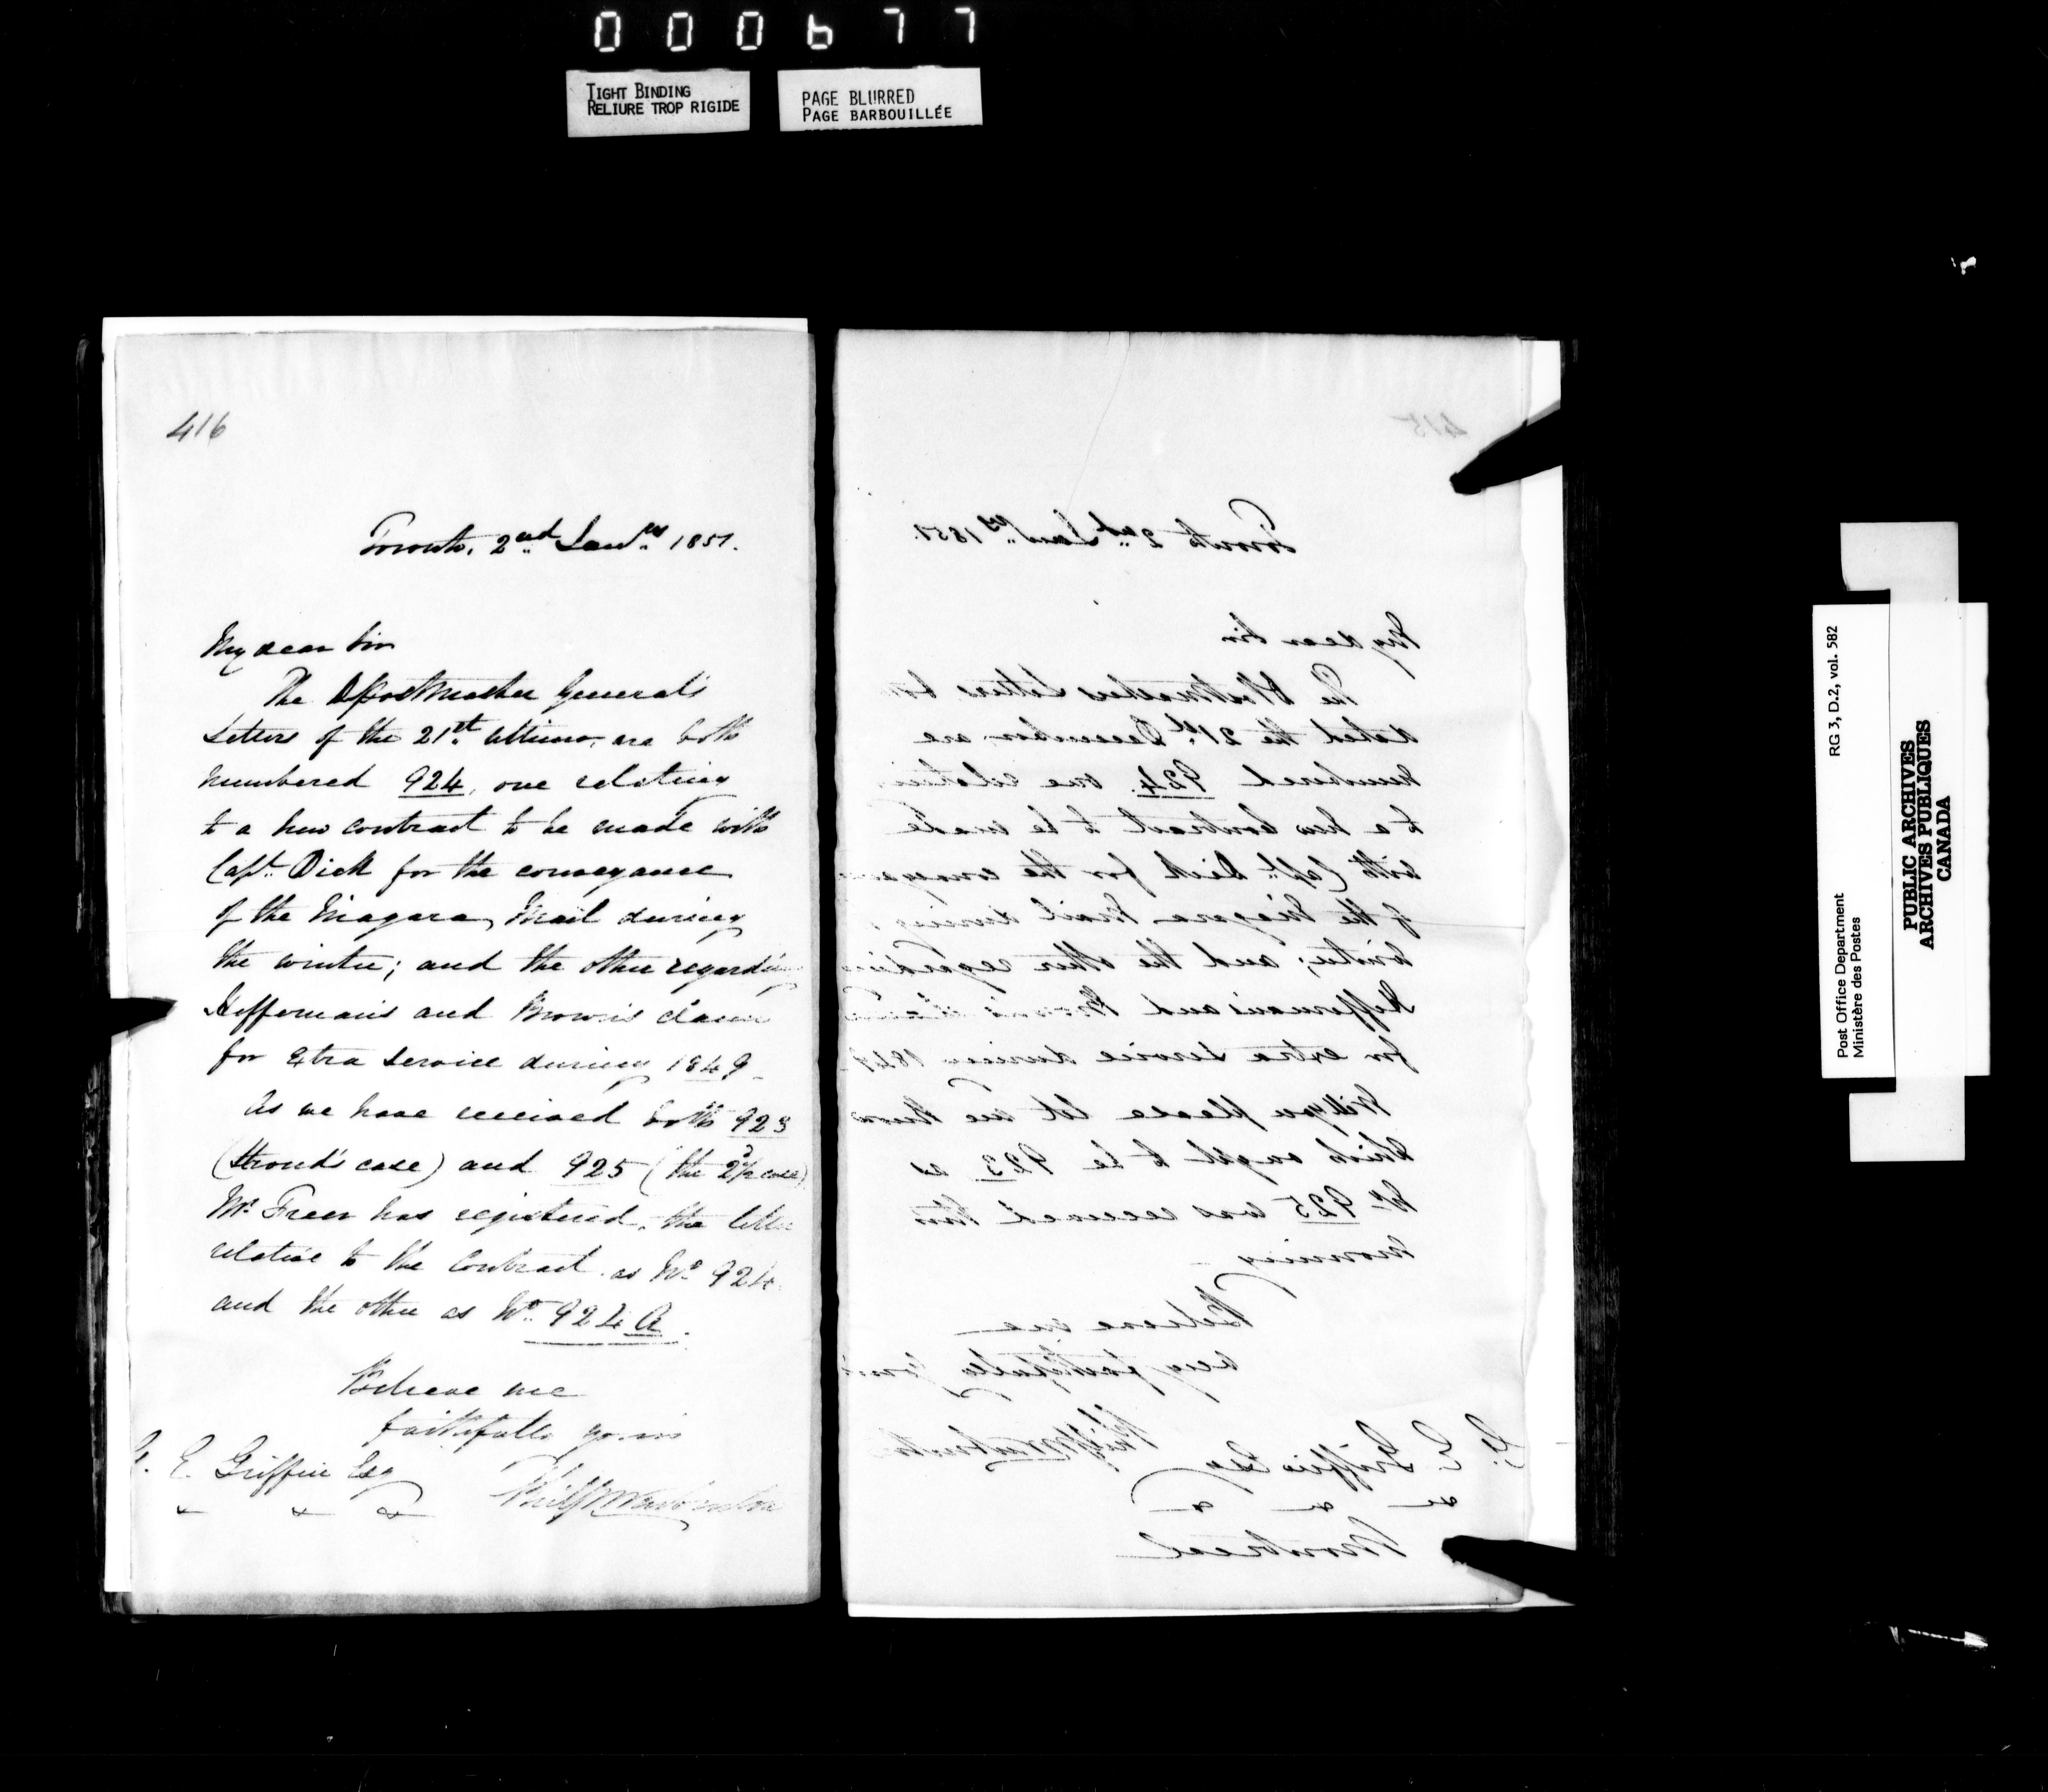 000677
TIGHT BINDING
RELIURE TROP RIGIDE
PAGE BLURRED
PAGE BARBOUILLÉE
416
Toronto, 2nd Jany 1851.
My dear Sir
The DPostmaster General's
Letters of the 21st ultimo, are both
numbered 924, one relating
to a new contract to be made with
Capt. Dick for the conveyance
of the Niagara Mail during
the winter; and the other regarding
Heffernan's and Brown's claim
for Extra Service during 1849_
As we have received both 923
(Stroud's case) and 925 (the 2½ case)
Mr Freer has registered, the letter
relative to the Contract as No 924
and the other as No. 924 A.
Believe me
faithfully yours
G. E. Griffin Esq
415
Toronto 2nd Jany 1851.
My dear Sir
The Postmasters Letters
dated the 21st December, are
numbered 924. one relating
to a new Contract to be made
with Capt. Dick for the conveyance
of the Niagara Mail during
winter; and the other regarding
Heffernan's and Brown's
for extra service during 1849
Will you please let me know
which ought to be 923 as
No 925 was received this
morning _
Believe me
very faithfully yours
G. E. Griffin Esq
Montreal
Post Office Department
Ministère des Postes
RG 3, D.2, vol. 582
PUBLIC ARCHIVES
ARCHIVES PUBLIQUES
CANADA